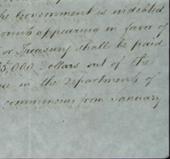 the Government is indebted
appearing in favor of
or Treasury shall be paid
5,000 Dollars out of the
in the Department of
commencing from January